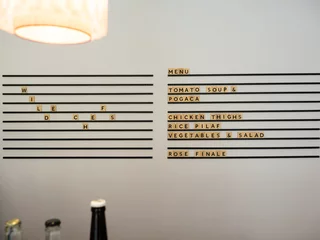 W
I
L E F
D C E S
H
MENU
TOMATO SOUP &
POGACA
CHICKEN THIGHS
RICE PILAF
VEGETABLES & SALAD
ROSE FINALE